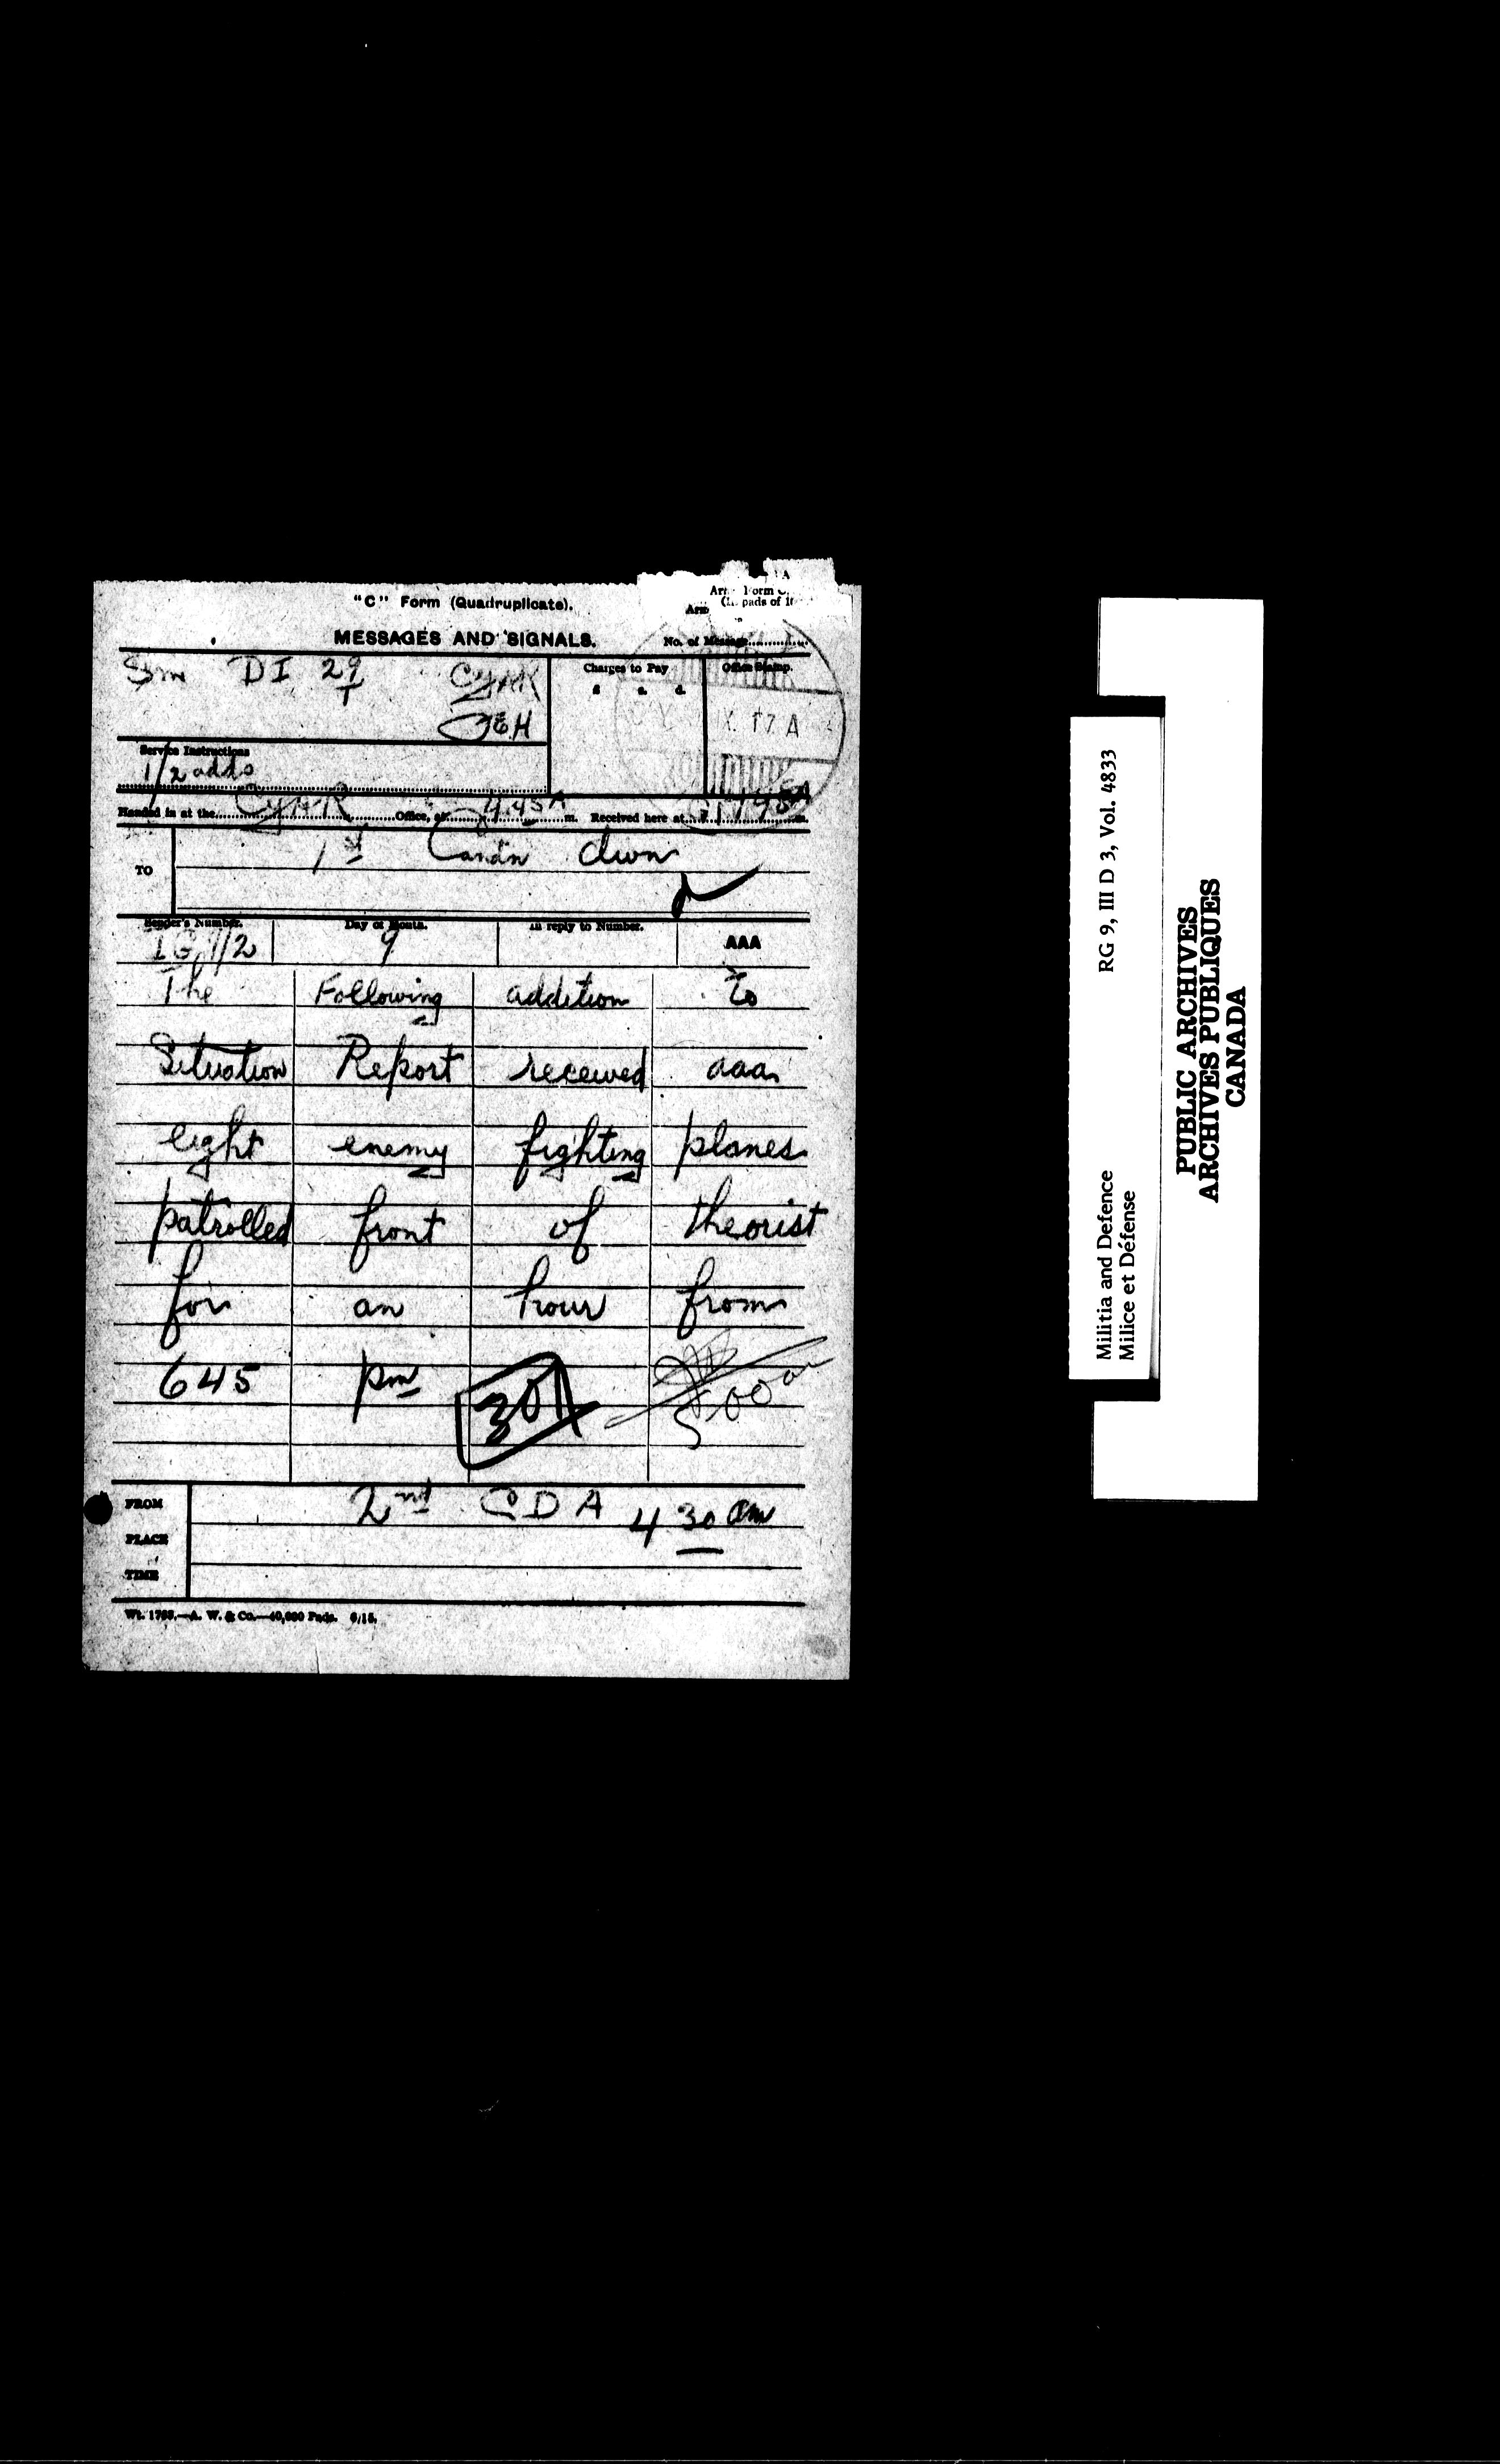 "C" Form (Quadruplicate).
MESSAGES AND SIGNALS.
No. of Message
Sm DI 29
T
JEH
Charges to Pay
£ s. d.
Office Stamp.
17 A
Service Instructions
1/2 adds
Handed in at the Office, at 4.45 A m. Received here at m.
TO
1st Canadn divn
Sender's Number.
Day of Month.
In reply to Number.
AAA
9
The Following addition to
Situation Report received aaa
eight enemy fighting planes
patrolled front of theorist
for an hour from
645 pm
301
500 am
FROM
PLACE
TIME
2nd CDA 4 30 am
Wt. 1765.—A. W. & Co.—40,000 Pads. 6/15.
Militia and Defence RG 9, III D 3, Vol. 4833
Milice et Défense
PUBLIC ARCHIVES
ARCHIVES PUBLIQUES
CANADA